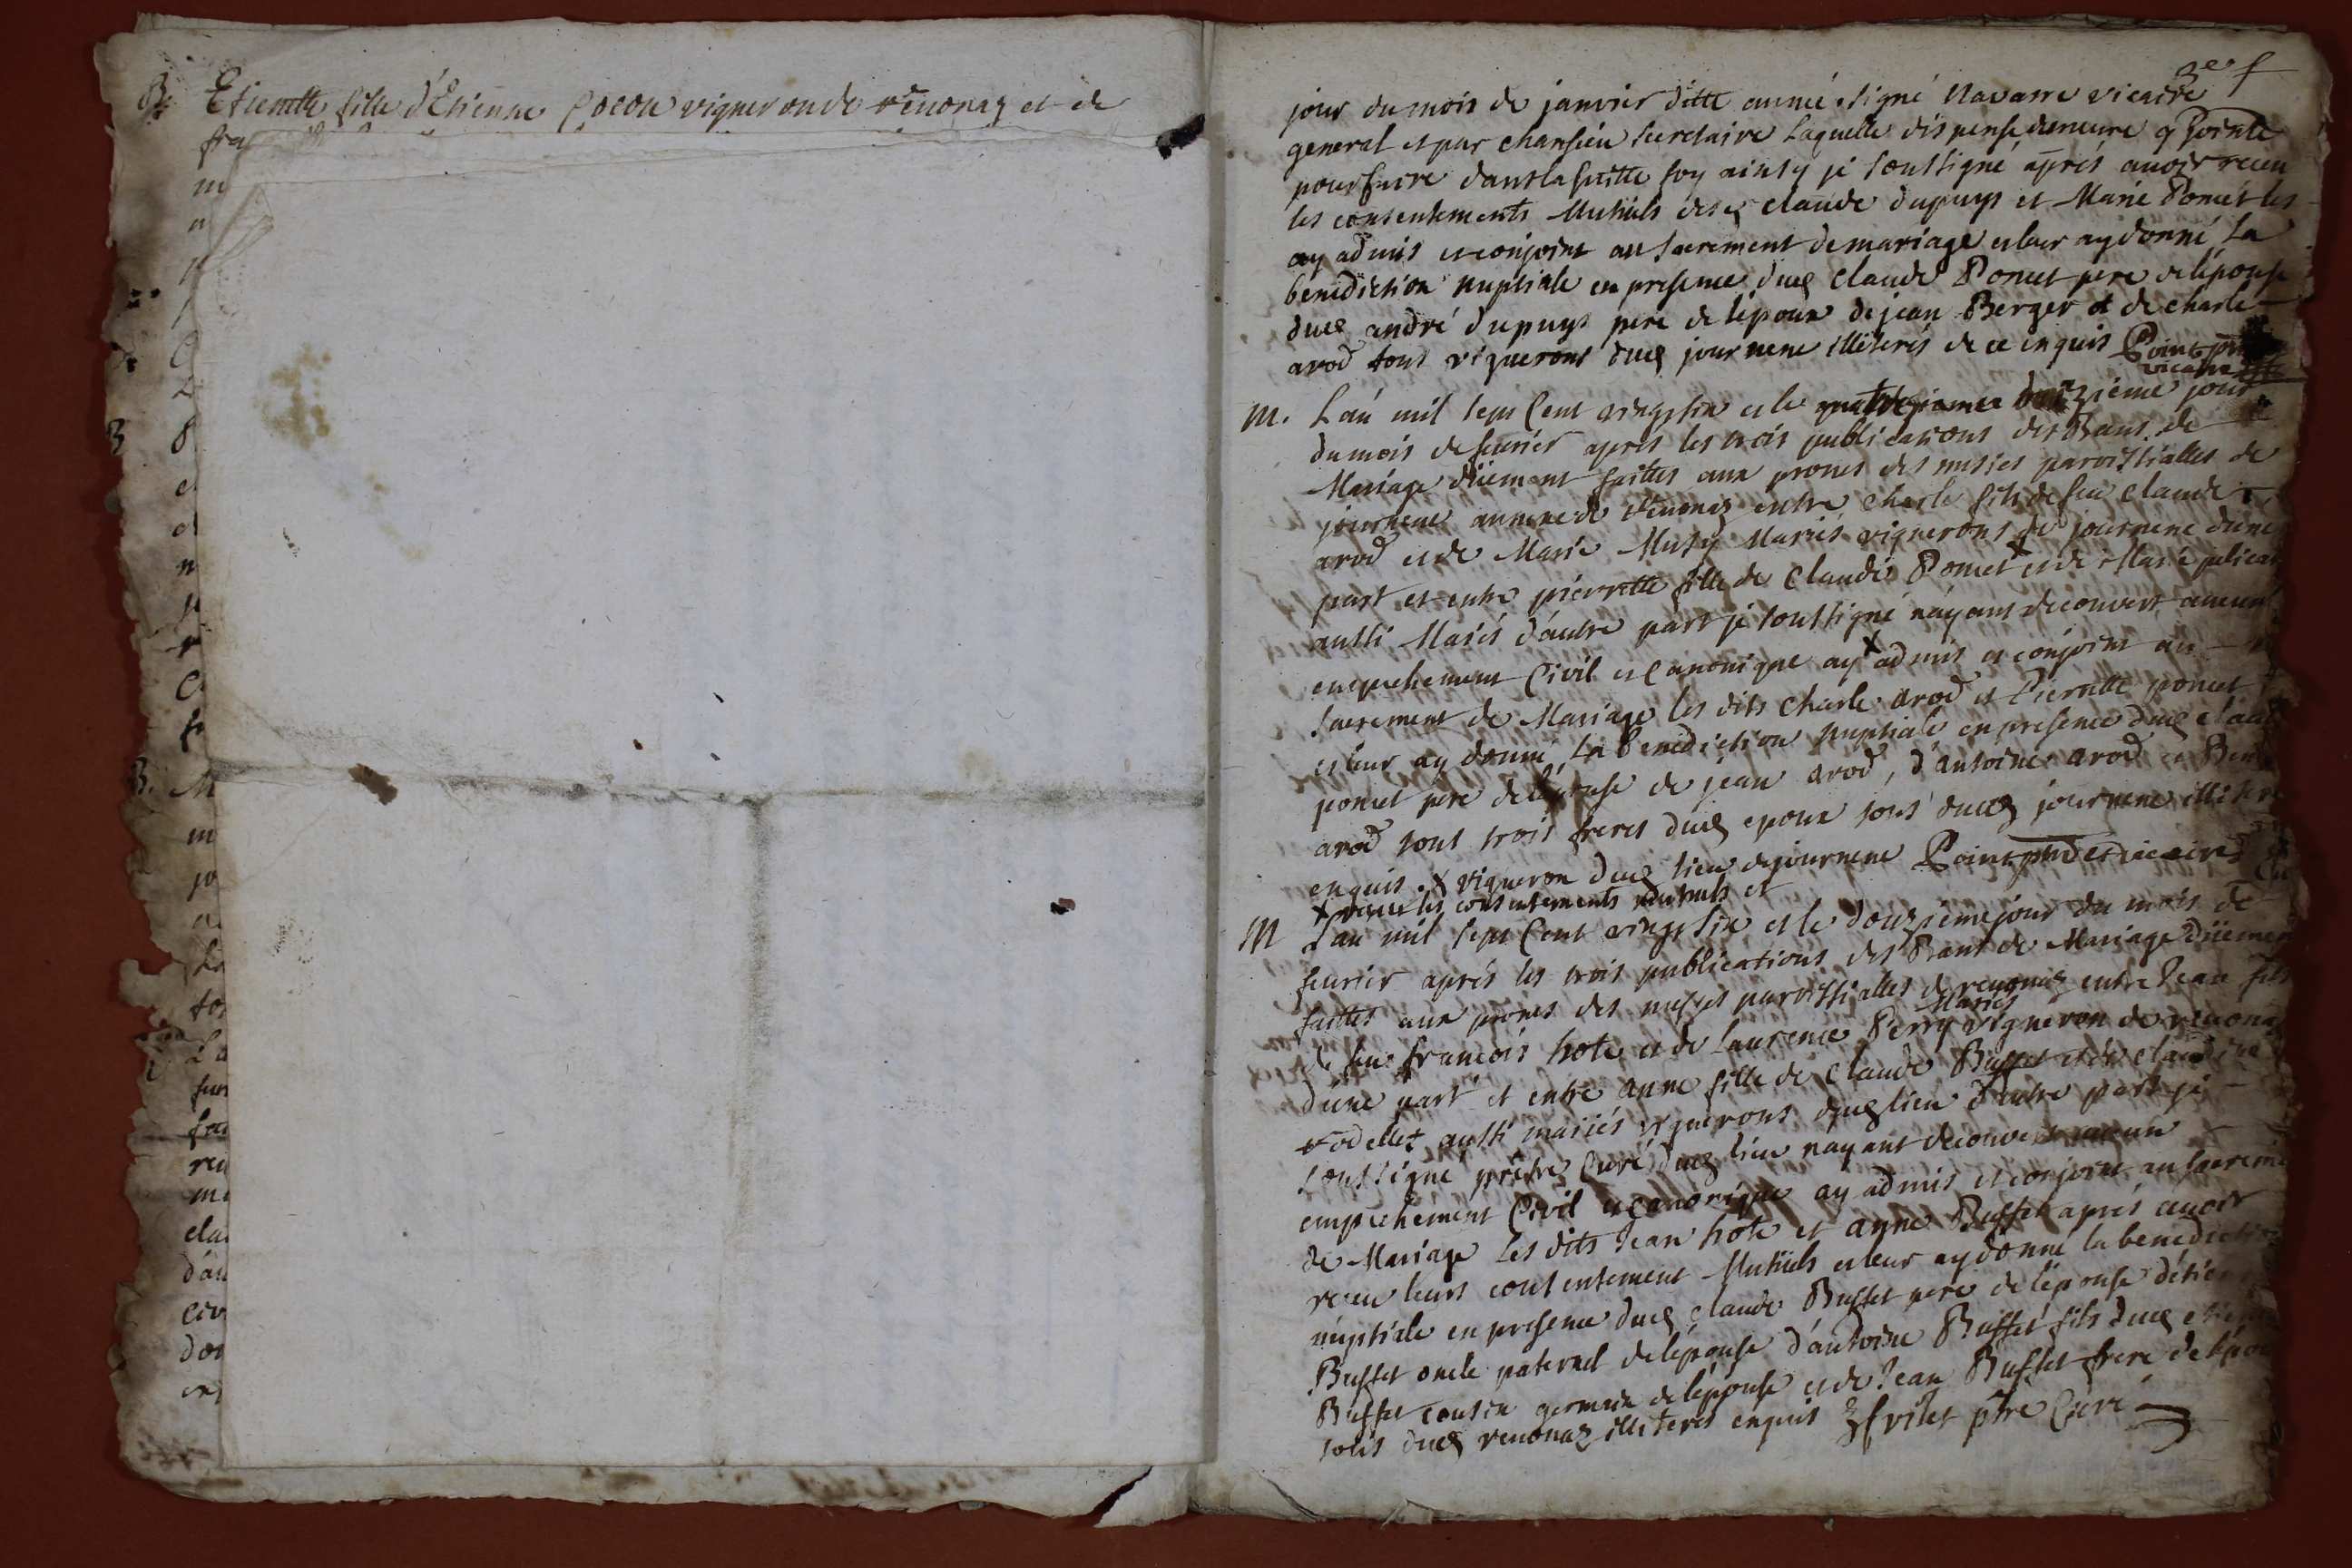 B. Etiennette fille d'Etienne Cocou vigneron de veuonaz et de
fra
m
C
B
B. M
m
jo
a
La
to
La
feu
fai
reu
me
cla
d'au
civ
don
3e f
jour du mois de janvier ditte année signé Navarre vicaire
general et par chansieu secretaire laquelle dispense demeure cy jointe
pour faire dans la suitte foy ainsy je soussigné après auoir receu
les consentements Mutuels des claude dupuys et Marie Poncet les
ay admis et conjoint au sacrement de mariage et leur ay donné la
benediction nuptiale en presence dud claude Poncet pere de l'épouse
dud andré dupuys pere de l'époux de jean Berger et de charle
arod tous vignerons dud journene illiterés de ce enquis Point ptre
vicaire
M. L'an mil sept Cent vingt six et le douzieme jour
du mois de feurier après les trois publications des Bans de
Mariage düement faittes aux prones des messes paroissialles de
journene annexe de veuonaz entre charle fils de feu claude
arod et de Marie Musy Mariés vignerons de journene d'une
part et entre pierrette fille de Claude Poncet x et de Marie pelican
aussi Mariés d'autre part je soussigné n'ayant decouvert aucun
empechement Civil et Canonique ay x admis et conjoint au
sacrement de Mariage les dits Charle arod et Pierrette poncet
et leur ay donné la benediction nuptiale en presence dud claude
poncet pere de l'épouse de jean arod, d'antoine arod et Ben
arod tous trois freres dud epoux tous dud journene illiteré
enquis. x vigneron dud lieu de journene Point ptre et vicaire
x receu les consentements mutuels et
M L'an mil sept Cent vingt six et le douzieme jour du mois de
feurier après les trois publications des Bans de Mariage düement
faittes aux prones des messes paroissialles de reuonaz entre Jean fils
de feu francois hote et de Laurence Perry Mariés vigneron de reuonaz
d'une part et entre anne fille de Claude Buffet et de claudine
vodellet aussi mariés vignerons dud lieu d'autre part je
soussigné prêtre Curé dud lieu nayant decouvert aucun
empechement Civil et canonique ay admis et conjoint au sacrement
de Mariage les dits Jean hote et anne Buffet après auoir
receu leurs consentement Mutuels et leur ay donné la benediction
nuptiale en presence dud claude Buffet pere de l'épouse d'étien
Buffet oncle paternel de l'épouse d'antoine Buffet fils dud etienne
Buffet cousin germain de l'épouse et de Jean Buffet frere de l'épouse
tous dud reuonaz illiterés enquis frilet ptre Curé